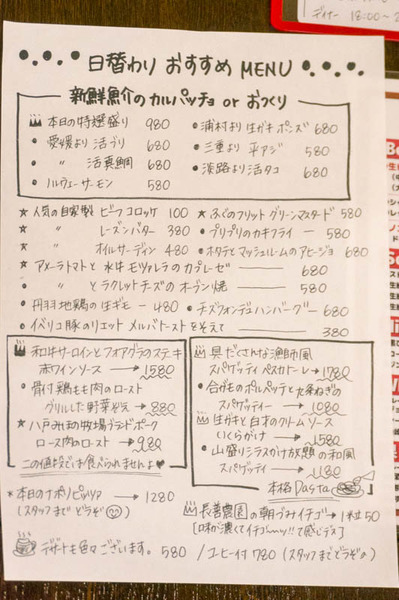 ディナー 18:00〜2
日替わり おすすめ MENU
新鮮魚介のカルパッチョ or おつくり
本日の特選盛り 980
・愛媛より 活ブリ 680
・〃 活真鯛 680
・ノルウェーサーモン 580
・浦村より 生ガキポンズ 680
・三重より 平アジ 580
・淡路より 活タコ 680
★人気の自家製 ビーフコロッケ 100
★ 〃 レーズンバター 380
★ 〃 オイルサーディン 480
★アメーラトマトと 水牛モツァレラのカプレーゼ ― 680
★ 〃 とラクレットチーズのオーブン焼 ― 580
・丹羽地鶏の生ギモ ― 480
・イベリコ豚のリエット メルバトーストをそえて ― 380
★ふぐのフリット グリーンマスタード 580
・プリプリのカキフライ ― 580
・ホタテとマッシュルームのアヒージョ 680
・チーズフォンデュハンバーグ ― 680
和牛サーロインとフォアグラのステーキ
赤ワインソース → 1580
・骨付鶏もも肉のロースト
グリルした野菜そえ → 880
★八戸みまの牧場グランドポーク
ロース肉のロースト → 980
この値段では食べられませんよ♥
具だくさんな漁師風
スパゲッティ ペスカトーレ → 1780
・合がものポルペッテと九条ねぎの
スパゲッティー → 1080
生ガキと白子のクリームソース
いくらがけ → 1580
・山盛りシラスかけ放題の和風
スパゲッティ → 1180
本格Pasta
*本日のナポリピッツァ → 1280
(スタッフまでどうぞ)
長善農園の朝づみイチゴ → 1粒50
[味が濃くてイチゴーッ!!て感じデス]
デザートも色々ございます。 580 / コーヒー付 780 (スタッフまでどうぞ♪)